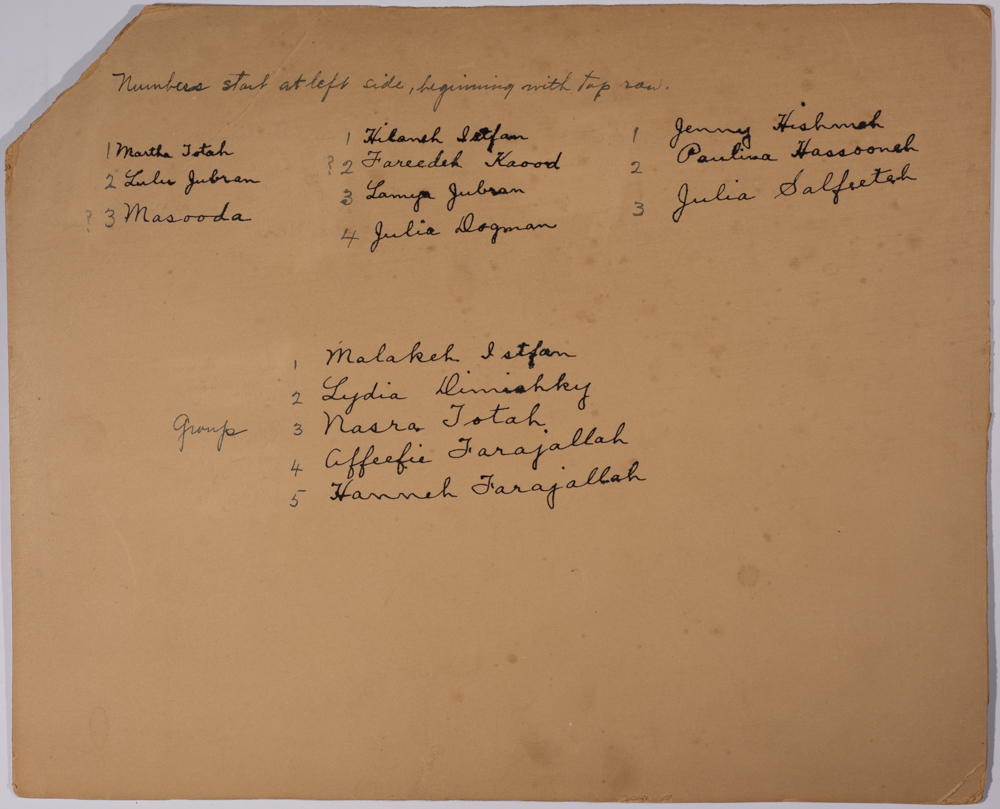 Numbers start at left side, beginning with top row.
1 Martha Totah
2 Lulu Jubran
? 3 Masooda
1 Hilaneh Istfan
? 2 Fareedeh Kaood
3 Lamya Jubran
4 Julia Dogman
1 Jenny Hishmeh
2 Paulina Hassooneh
3 Julia Salfeeteh
1 Malakeh Istfan
2 Lydia Dimishky
Group 3 Nasra Totah
4 Affeefie Farajallah
5 Hanneh Farajallah